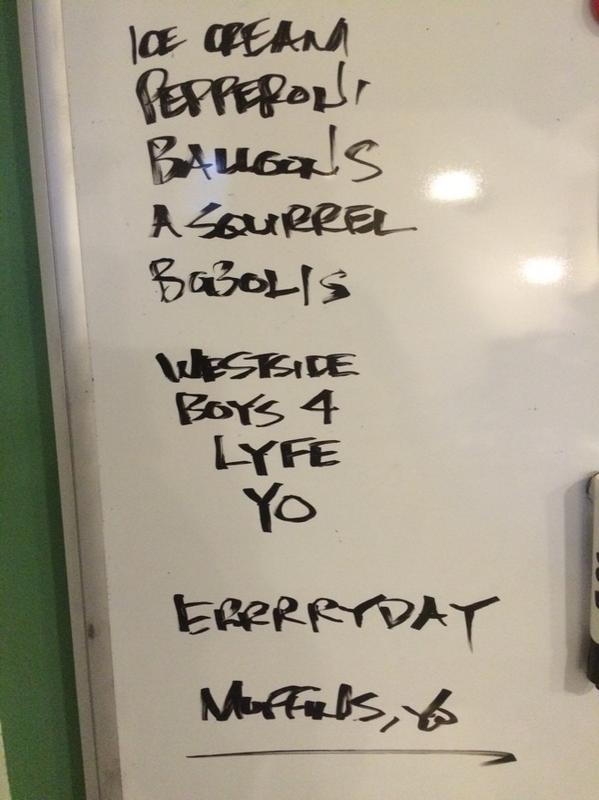 ICE CREAM
PEPPERONI
BALLOONS
A SQUIRREL
BOBOLIS
WESTSIDE
BOYS 4
LYFE
YO
ERRRRYDAY
MUFFINS, YO